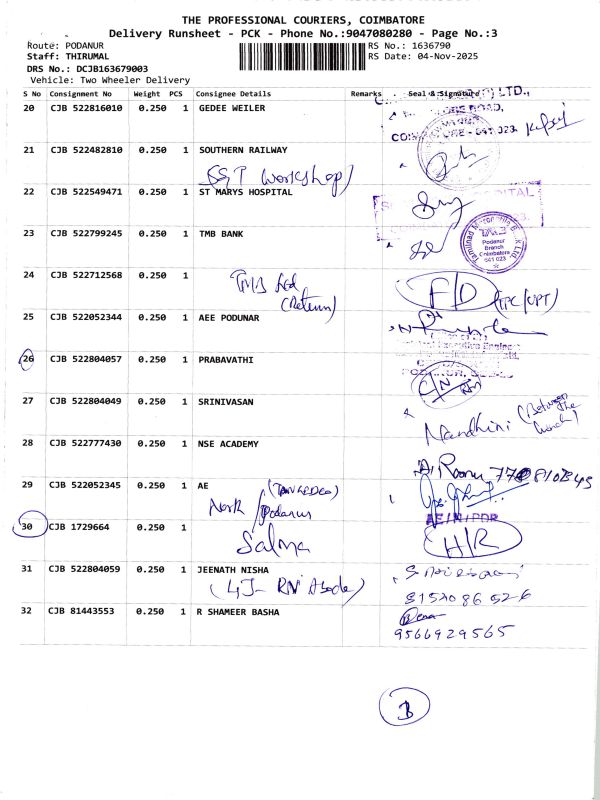 THE PROFESSIONAL COURIERS, COIMBATORE
Delivery Runsheet - PCK - Phone No.:9047080280 - Page No.:3
Route: PODANUR
RS No.: 1636790
Staff: THIRUMAL
RS Date: 04-Nov-2025
DRS No.: DCJB163679003
Vehicle: Two Wheeler Delivery
S No Consignment No Weight PCS Consignee Details Remarks Seal & Signature
20 CJB 522816010 0.250 1 GEDEE WEILER
21 CJB 522482810 0.250 1 SOUTHERN RAILWAY
(S&T Workshop)
22 CJB 522549471 0.250 1 ST MARYS HOSPITAL
23 CJB 522799245 0.250 1 TMB BANK
Podanur
Branch
Coimbatore
641 023
24 CJB 522712568 0.250 1
TMB
(Return)
F/D
25 CJB 522052344 0.250 1 AEE PODUNAR
26 CJB 522804057 0.250 1 PRABAVATHI
27 CJB 522804049 0.250 1 SRINIVASAN
Nandhini (Between the
28 CJB 522777430 0.250 1 NSE ACADEMY
29 CJB 522052345 0.250 1 AE (TANGEDCO)
North / Podanur
AE/N/PDR
30 CJB 1729664 0.250 1
Salma
H/R
31 CJB 522804059 0.250 1 JEENATH NISHA
32 CJB 81443553 0.250 1 R SHAMEER BASHA
9566929565